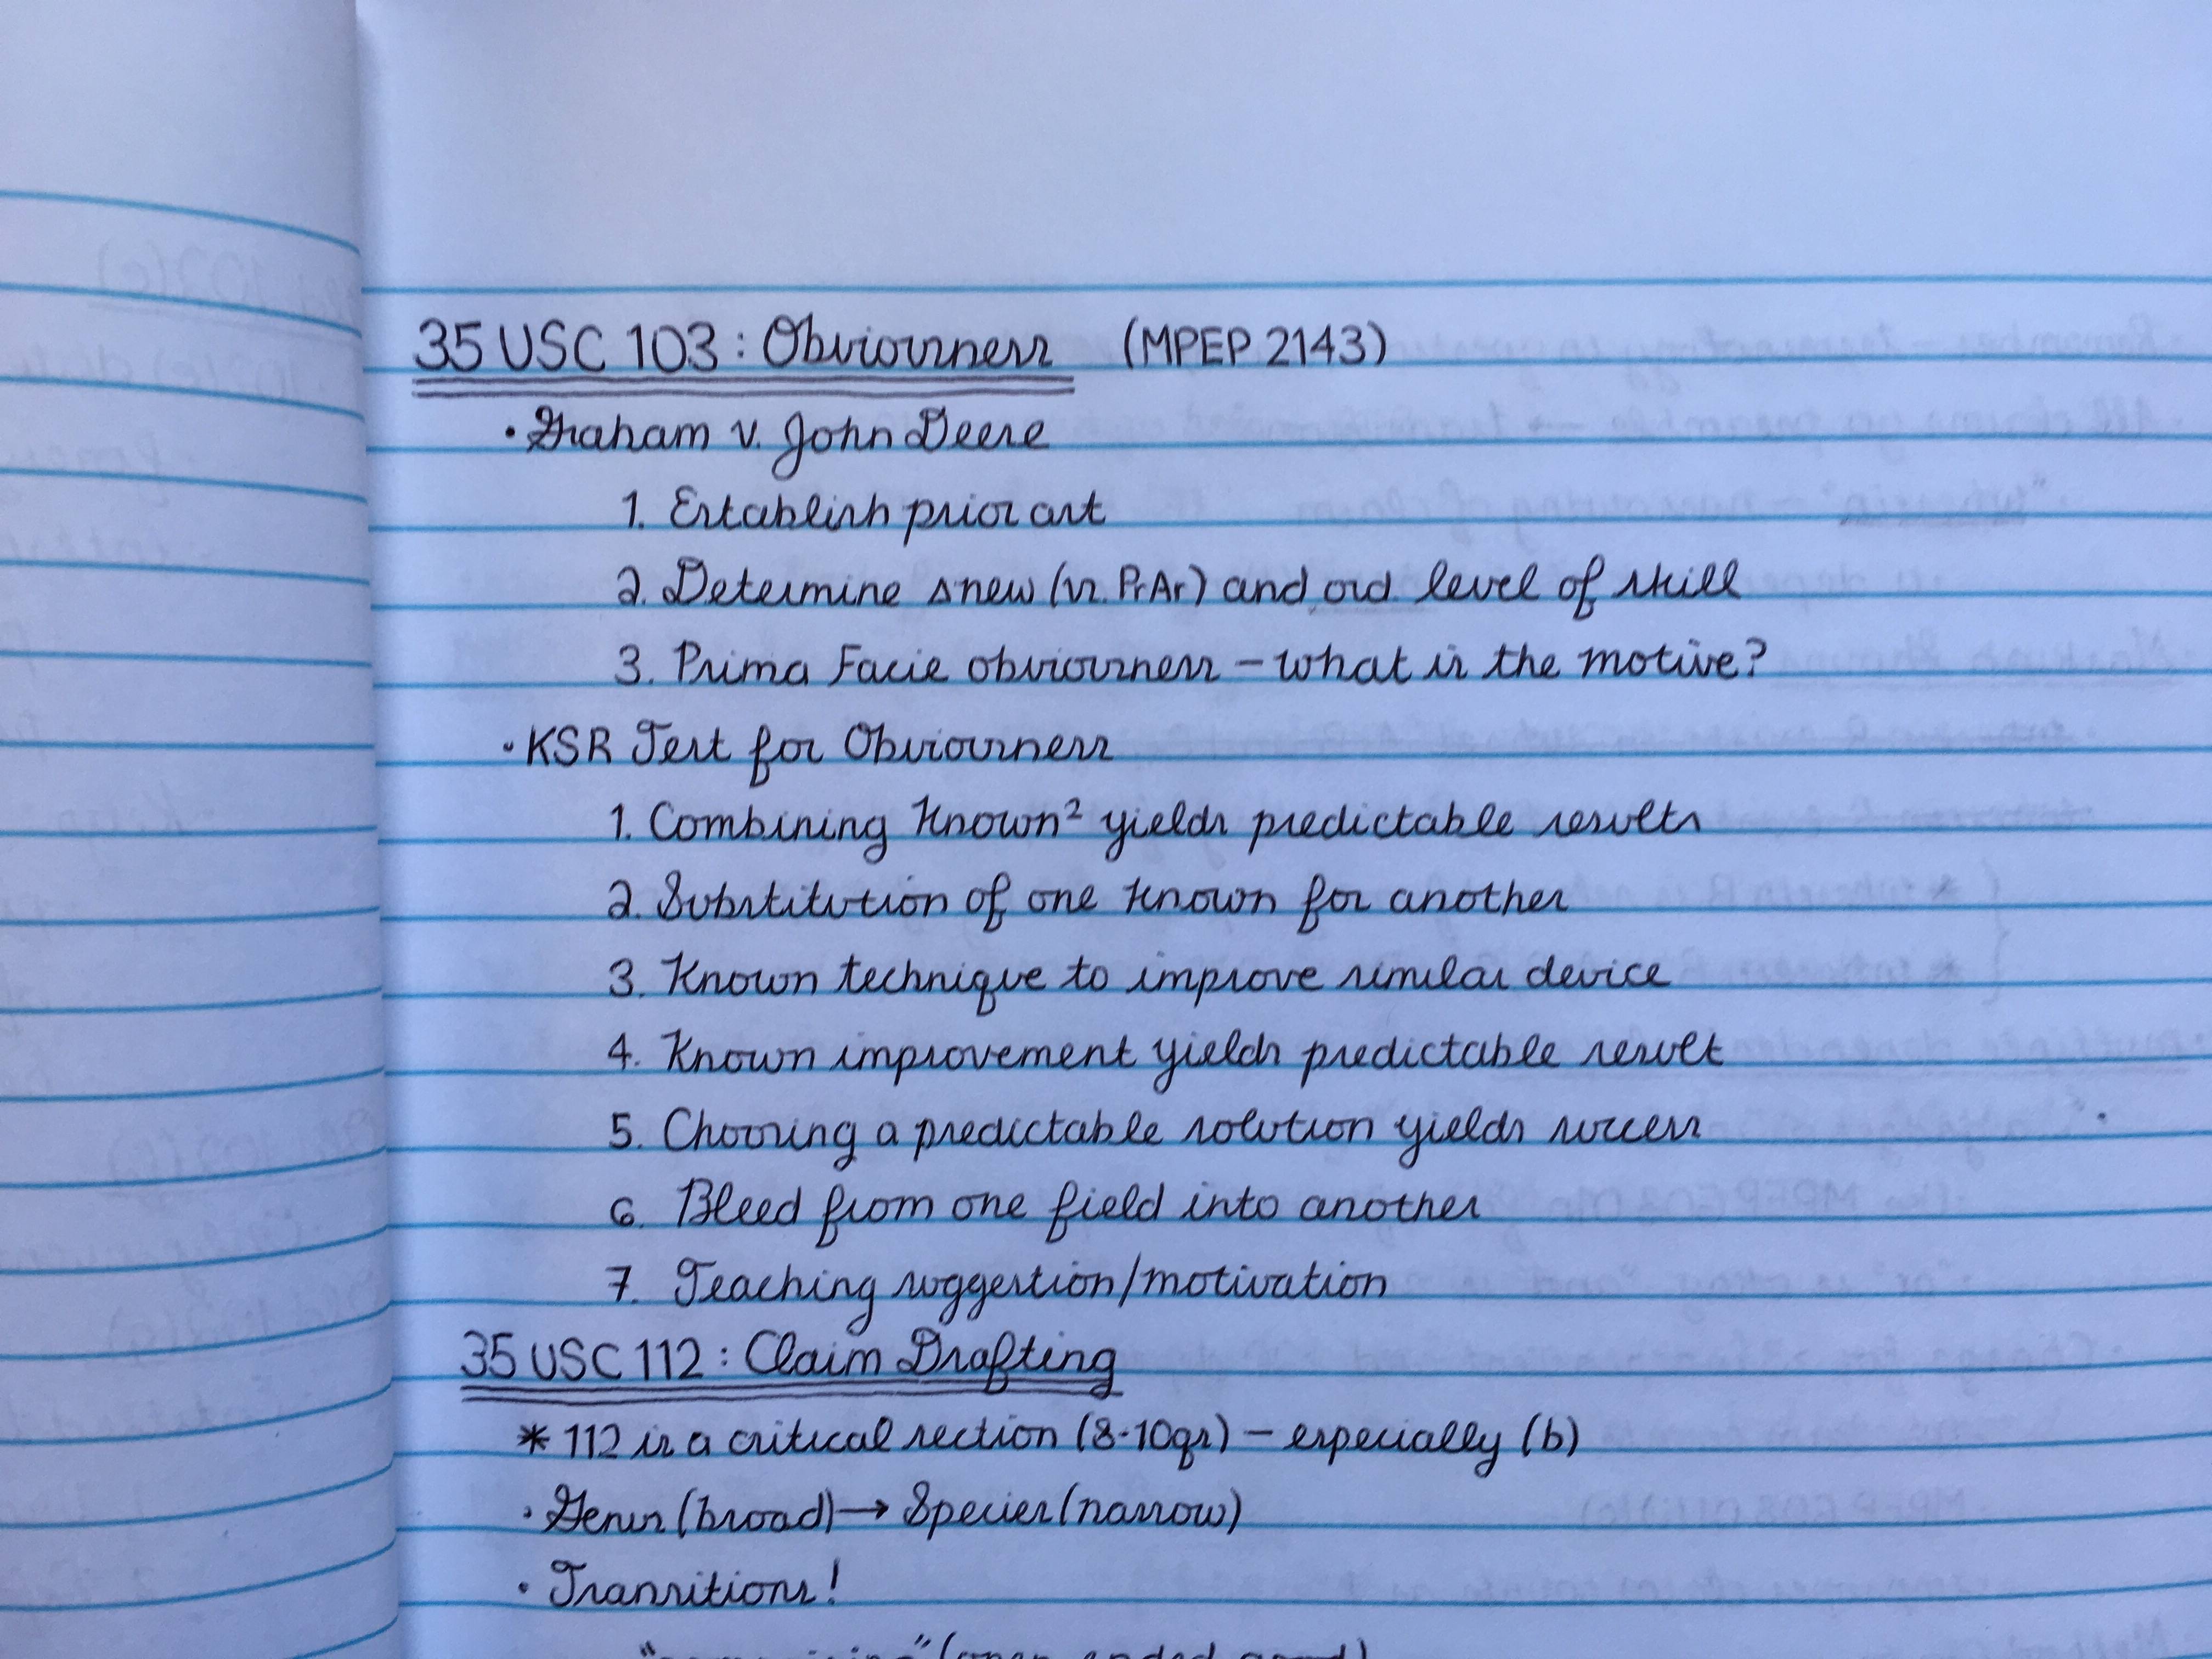 35 USC 103: Obviousness (MPEP 2143)
• Graham v. John Deere
1. Establish prior art
2. Determine Δnew (vs. PrAr) and ord level of skill
3. Prima Facie obviousness – what is the motive?
• KSR Test for Obviousness
1. Combining known² yields predictable results
2. Substitution of one known for another
3. Known technique to improve similar device
4. Known improvement yields predictable result
5. Choosing a predictable solution yields success
6. Bleed from one field into another
7. Teaching suggestion/motivation
35 USC 112: Claim Drafting
* 112 is a critical section (8-10qs) – especially (b)
• Genus (broad) → Species (narrow)
• Transitions!